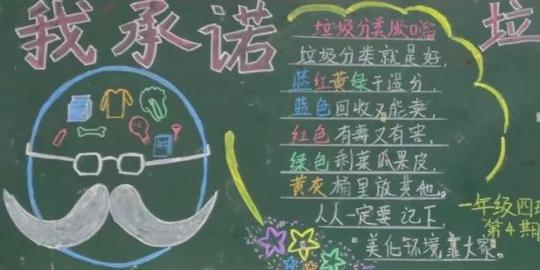 我承诺
垃
垃圾分类顺口溜
垃圾分类就是好,
蓝红黄绿干湿分,
蓝色回收又能卖,
红色有毒又有害,
绿色剩菜瓜果皮,
黄灰桶里放其他。
人人一定要记下,
美化环境靠大家。
一年级四班
第4期